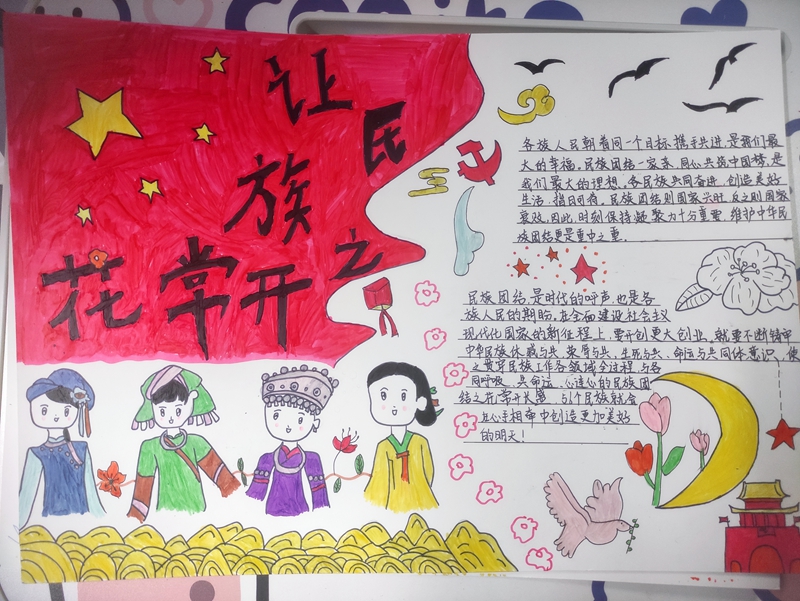 让民族之
花常开
各族人民朝着同一个目标，携手共进，是我们最
大的幸福。民族团结一家亲，同心共筑中国梦，是
我们最大的理想。各民族共同奋进，创造美好
生活，指日可待。民族团结则国家兴旺，反之则国家
衰败。因此，时刻保持凝聚力十分重要，维护中华民
族团结更是重中之重。
民族团结，是时代的呼声，也是各
族人民的期盼，在全面建设社会主义
现代化国家的新征程上，要开创更大创业，就要不断铸牢
中华民族休戚与共、荣辱与共、生死与共、命运与共同体意识，使
之贯穿民族工作各领域全过程，与各
同呼吸、共命运、心连心的民族团
结之花常开长盛，56个民族就会
在心手相牵中创造更加美好
的明天！